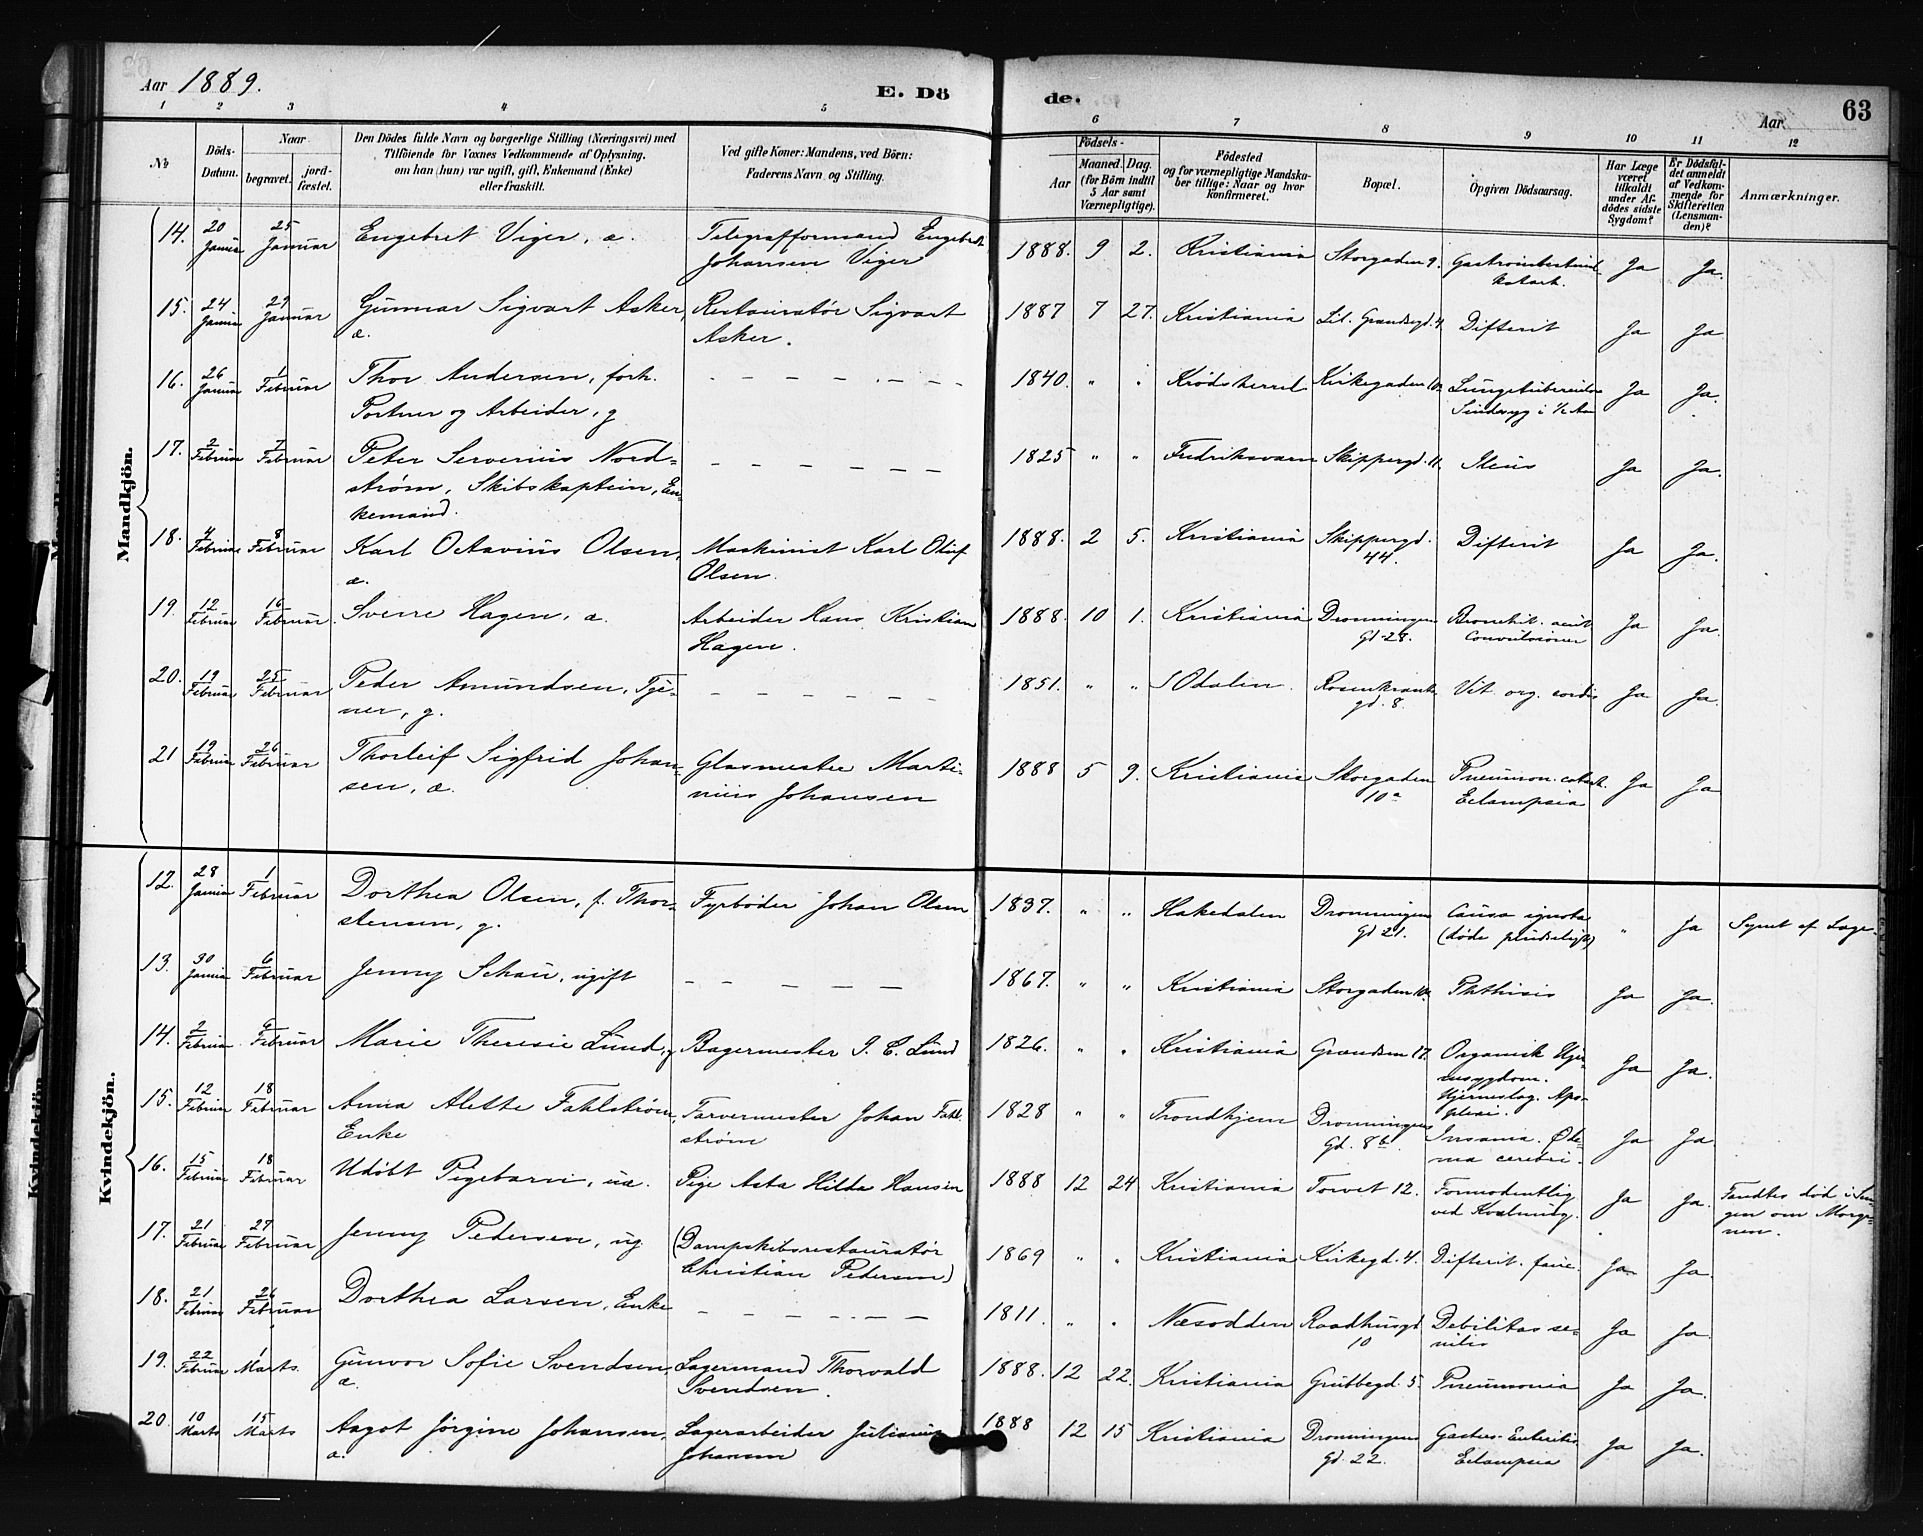 Aar 1889.
E. Dö
de.
63
Aar
1 2 3 4 5 6 7 8 9 10 11 12
No
Döds-Datum.
Naar
begravet.
jord-fæstet.
Den Dödes fulde Navn og borgerlige Stilling (Næringsvei) med
Tilföiende for Voxnes Vedkommende af Oplysning,
om han (hun) var ugift, gift, Enkemand (Enke)
eller fraskilt.
Ved gifte Koner: Mandens, ved Börn:
Faderens Navn og Stilling.
Födsels-
Aar
Maaned.
Dag.
(for Börn indtil
5 Aar samt
Værnepligtige).
Födested
og for værnepligtige Mandska-
ber tillige: Naar og hvor
konfirmeret.
Bopæl.
Opgiven Dödsaarsag.
Har Læge
været
tilkaldt
under Af-
dödes sidste
Sygdom?
Er Dödsfal-
det anmeldt
af Vedkom-
mende for
Skifteretten
(Lensman-
den)?
Anmærkninger.
Mandkjön.
14. 20 Januar 25 Januar Engebret Viger, æ. Telegrafformand Engebret
Johansen Viger 1888. 9 2. Kristiania Storgaden 9. Ja Ja.
katarh.
15. 24 Januar 29 Januar Gunnar Sigvart Asker, Restauratør Sigvart 1887 7 27. Kristiania Lil. Grændsegd. 4. Difterit Ja Ja.
æ. Asker.
16. 26 Januar 1 Februar Thor Andersen, forh. — — — — — — 1840. " " Krødsherred Kirkegaden Ja Ja.
Portner og Arbeider, g
17. 2 Februar 7 Februar Peter Severius Nord= — — — — — — 1825 " " Fredriksværn Skippergd. 11. Ileus Ja Ja.
strøm, Skibskaptein, En-
kemand.
18. 4 Februar 8 Februar Karl Octavius Olsen, Maskinist Karl Oluf 1888. 2 5. Kristiania Skippergd. Difterit Ja Ja.
æ. Olsen. 44.
19. 12 Februar 16 Februar Sverre Hagen, æ. Arbeider Hans Kristian 1888. 10 1. Kristiania Dronningen Bronchit. acut. Ja Ja.
Hagen. Gd. 28. Convulsioner
20. 19 Februar 25 Februar Peder Amundsen, Tje- — — — — — — 1851. " " S Odalen. Rosenkrantz Vit. org. cordis Ja Ja.
ner, g. gd. 8.
21 19 Februar 26 Februar Thorleif Sigfrid Johan- Glasmester Marti- 1888 5 9. Kristiania Storgaden Pneumon. catarh. Ja Ja
sen, æ. nius Johansen 10a Eclampsia
Kvindekjön.
12. 28 Januar 1 Februar Dorthea Olsen, f. Thor- Fyrbøder Johan Olsen 1837. " " Hakedalen Dronningen Causa ignota " Ja Synet af Læge.
stensen, g. Gd 21. (døde pludseligt)
13. 30 Januar 6 Februar Jenny Schau, ugift — — — — — 1867. " " Kristiania Storgaden 10. Phthisis Ja Ja.
14. 2 Februar 9 Februar Marie Theresie Lund, g Bagermester P. C. Lund 1826. " " Kristiania Grændsen 17. Organisk Hjer- Ja Ja.
tesygdom.
Hjerneslag. Apo-
plexi.
15. 12 Februar 18 Februar Anna Alette Fahlstrøm, Farvermester Johan Fahl. 1828 " " Trondhjem Dronningens Insania. Øde- Ja Ja
Enke strøm Gd. 8b. ma cerebri.
16. 15 Februar 18 Februar Udøbt Pigebarn, uæ. Pige Asta Hilda Hansen 1888 12 24 Kristiania Torvet 12. Formodentlig Ja Ja. Fandtes død i Sen-
ved Kvælning. gen om Morge-
nen.
17. 21 Februar 27 Februar Jenny Pedersen, ug. (Dampskibsrestauratør 1869 " " Kristiania Kirkegd. 4. Difterit. Ja Ja.
Christian Pedersen)
18. 21 Februar 26 Februar Dorthea Larsen, Enke — — — — — 1811. " " Næsodden Raadhusgd Debilitas se- Ja Ja.
10 nilis
19. 22 Februar 1 Marts. Gunvor Sofie Svendsen, Lagermand Thorvald 1888. 12 22. Kristiania Grubbegd. 5. Pneumonia Ja Ja.
æ. Svendsen.
20. 10 Marts 15 Marts Aagot Jørgine Johansen, Lagerarbeider Julianus 1888 12 15 Kristiania Dronningens Gastro-Enteritis Ja Ja.
æ. Johansen Gd. 22. Eclampsia